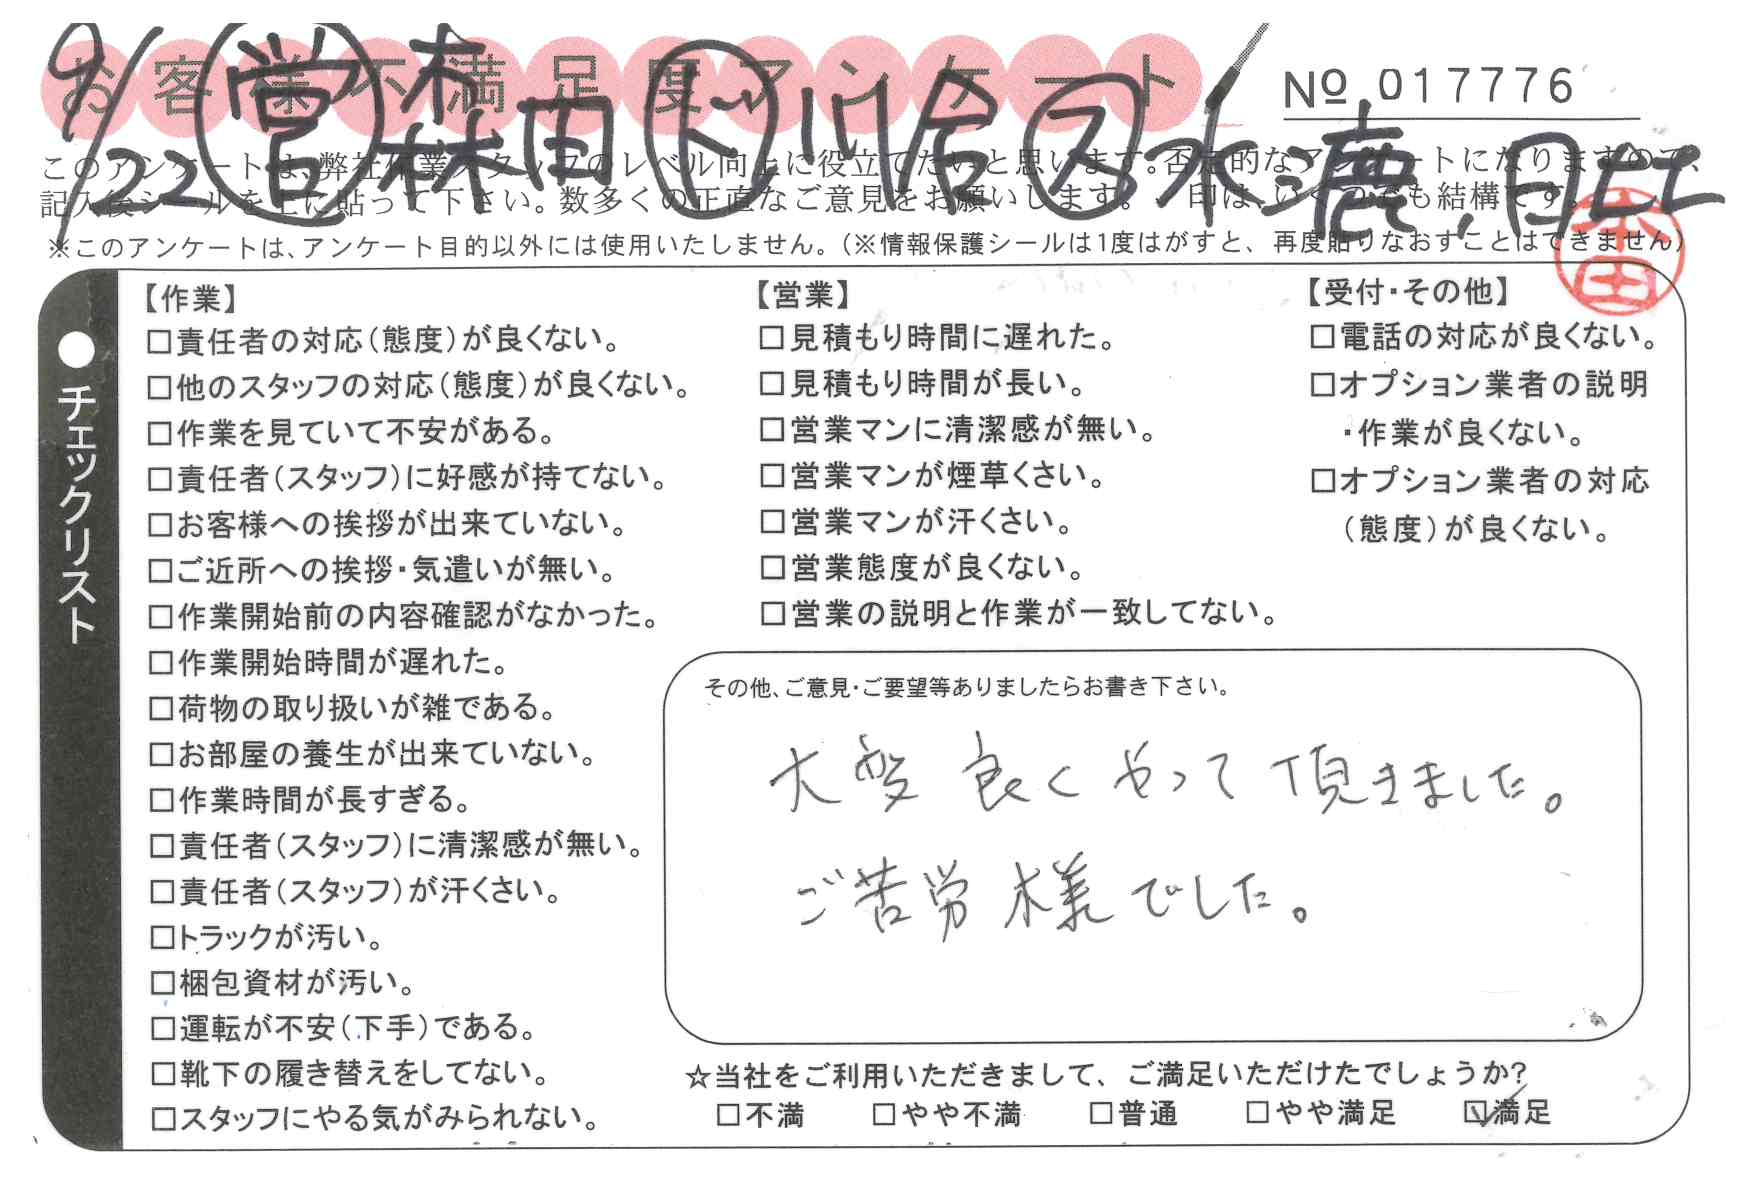 お客様不満足度アンケート
No 017776
9/22 営 森田 ド 川合 ス 水漉,
このアンケートは、弊社作業スタッフのレベル向上に役立てたいと思います。否定的なアンケートになりますので、
記入後シールを上に貼って下さい。数多くの正直なご意見をお願いします。✓印は、いくつでも結構です。
※このアンケートは、アンケート目的以外には使用いたしません。(※情報保護シールは1度はがすと、再度貼りなおすことはできません)
本田
●チェックリスト
【作業】
□責任者の対応(態度)が良くない。
□他のスタッフの対応(態度)が良くない。
□作業を見ていて不安がある。
□責任者(スタッフ)に好感が持てない。
□お客様への挨拶が出来ていない。
□ご近所への挨拶・気遣いが無い。
□作業開始前の内容確認がなかった。
□作業開始時間が遅れた。
□荷物の取り扱いが雑である。
□お部屋の養生が出来ていない。
□作業時間が長すぎる。
□責任者(スタッフ)に清潔感が無い。
□責任者(スタッフ)が汗くさい。
□トラックが汚い。
□梱包資材が汚い。
□運転が不安(下手)である。
□靴下の履き替えをしてない。
□スタッフにやる気がみられない。
【営業】
□見積もり時間に遅れた。
□見積もり時間が長い。
□営業マンに清潔感が無い。
□営業マンが煙草くさい。
□営業マンが汗くさい。
□営業態度が良くない。
□営業の説明と作業が一致してない。
【受付・その他】
□電話の対応が良くない。
□オプション業者の説明
・作業が良くない。
□オプション業者の対応
(態度)が良くない。
その他、ご意見・ご要望等ありましたらお書き下さい。
大変良くやって頂きました。
ご苦労様でした。
☆当社をご利用いただきまして、ご満足いただけたでしょうか?
□不満 □やや不満 □普通 □やや満足 ☑満足